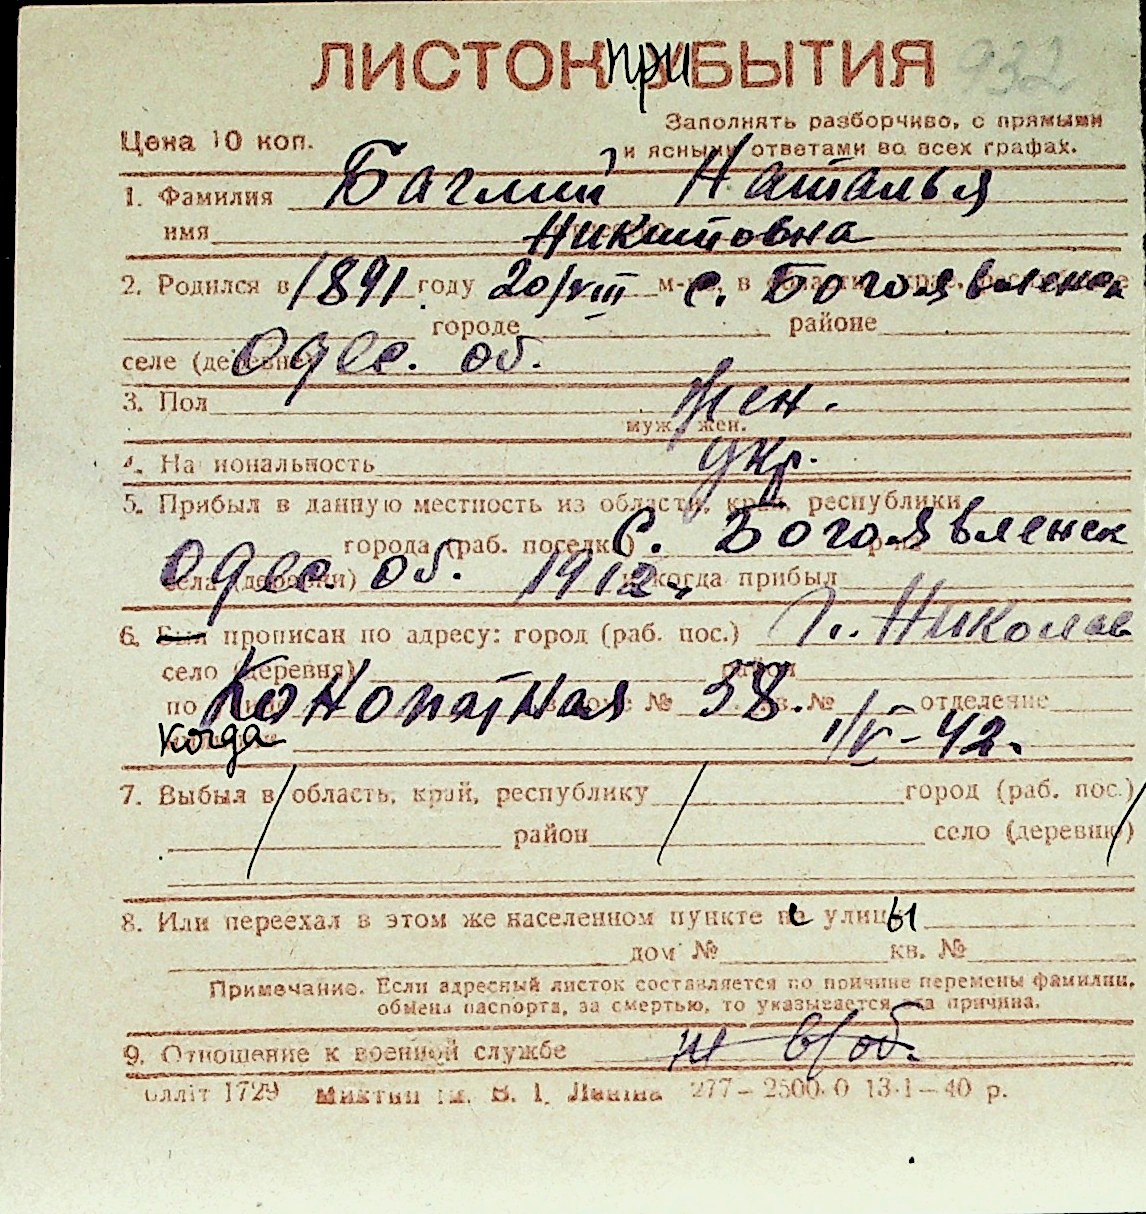 ЛИСТОК при БЫТИЯ 932
Заполнять разборчиво, с прямыми
Цена 10 коп.
и ясными ответами во всех графах.
1. Фамилия Баглий Наталья
имя Никитовна
2. Родился в 1891 году 20/VIII м-це, в с. Богоявленск
городе районе
селе (деревне) Одес. об.
3. Пол жен.
муж. жен.
4. Национальность укр.
5. Прибыл в данную местность из области, края, республики
города (раб. поселка) с. Богоявленск
села (деревни) Одес. об. 1912 г. и когда прибыл
6. Был прописан по адресу: город (раб. пос.) г. Николаев
село (деревня) район
по Конопатная № 38. № отделение
когда 1/V-42.
7. Выбыл в область, край, республику город (раб. пос.)
район село (деревню)
8. Или переехал в этом же населенном пункте с улицы
дом № кв. №
Примечание. Если адресный листок составляется по причине перемены фамилии,
обмена паспорта, за смертью, то указывается эта причина.
9. Отношение к военной службе н в/об.
1729 им. В. І. Леніна 277–2500.0 13-1–40 р.